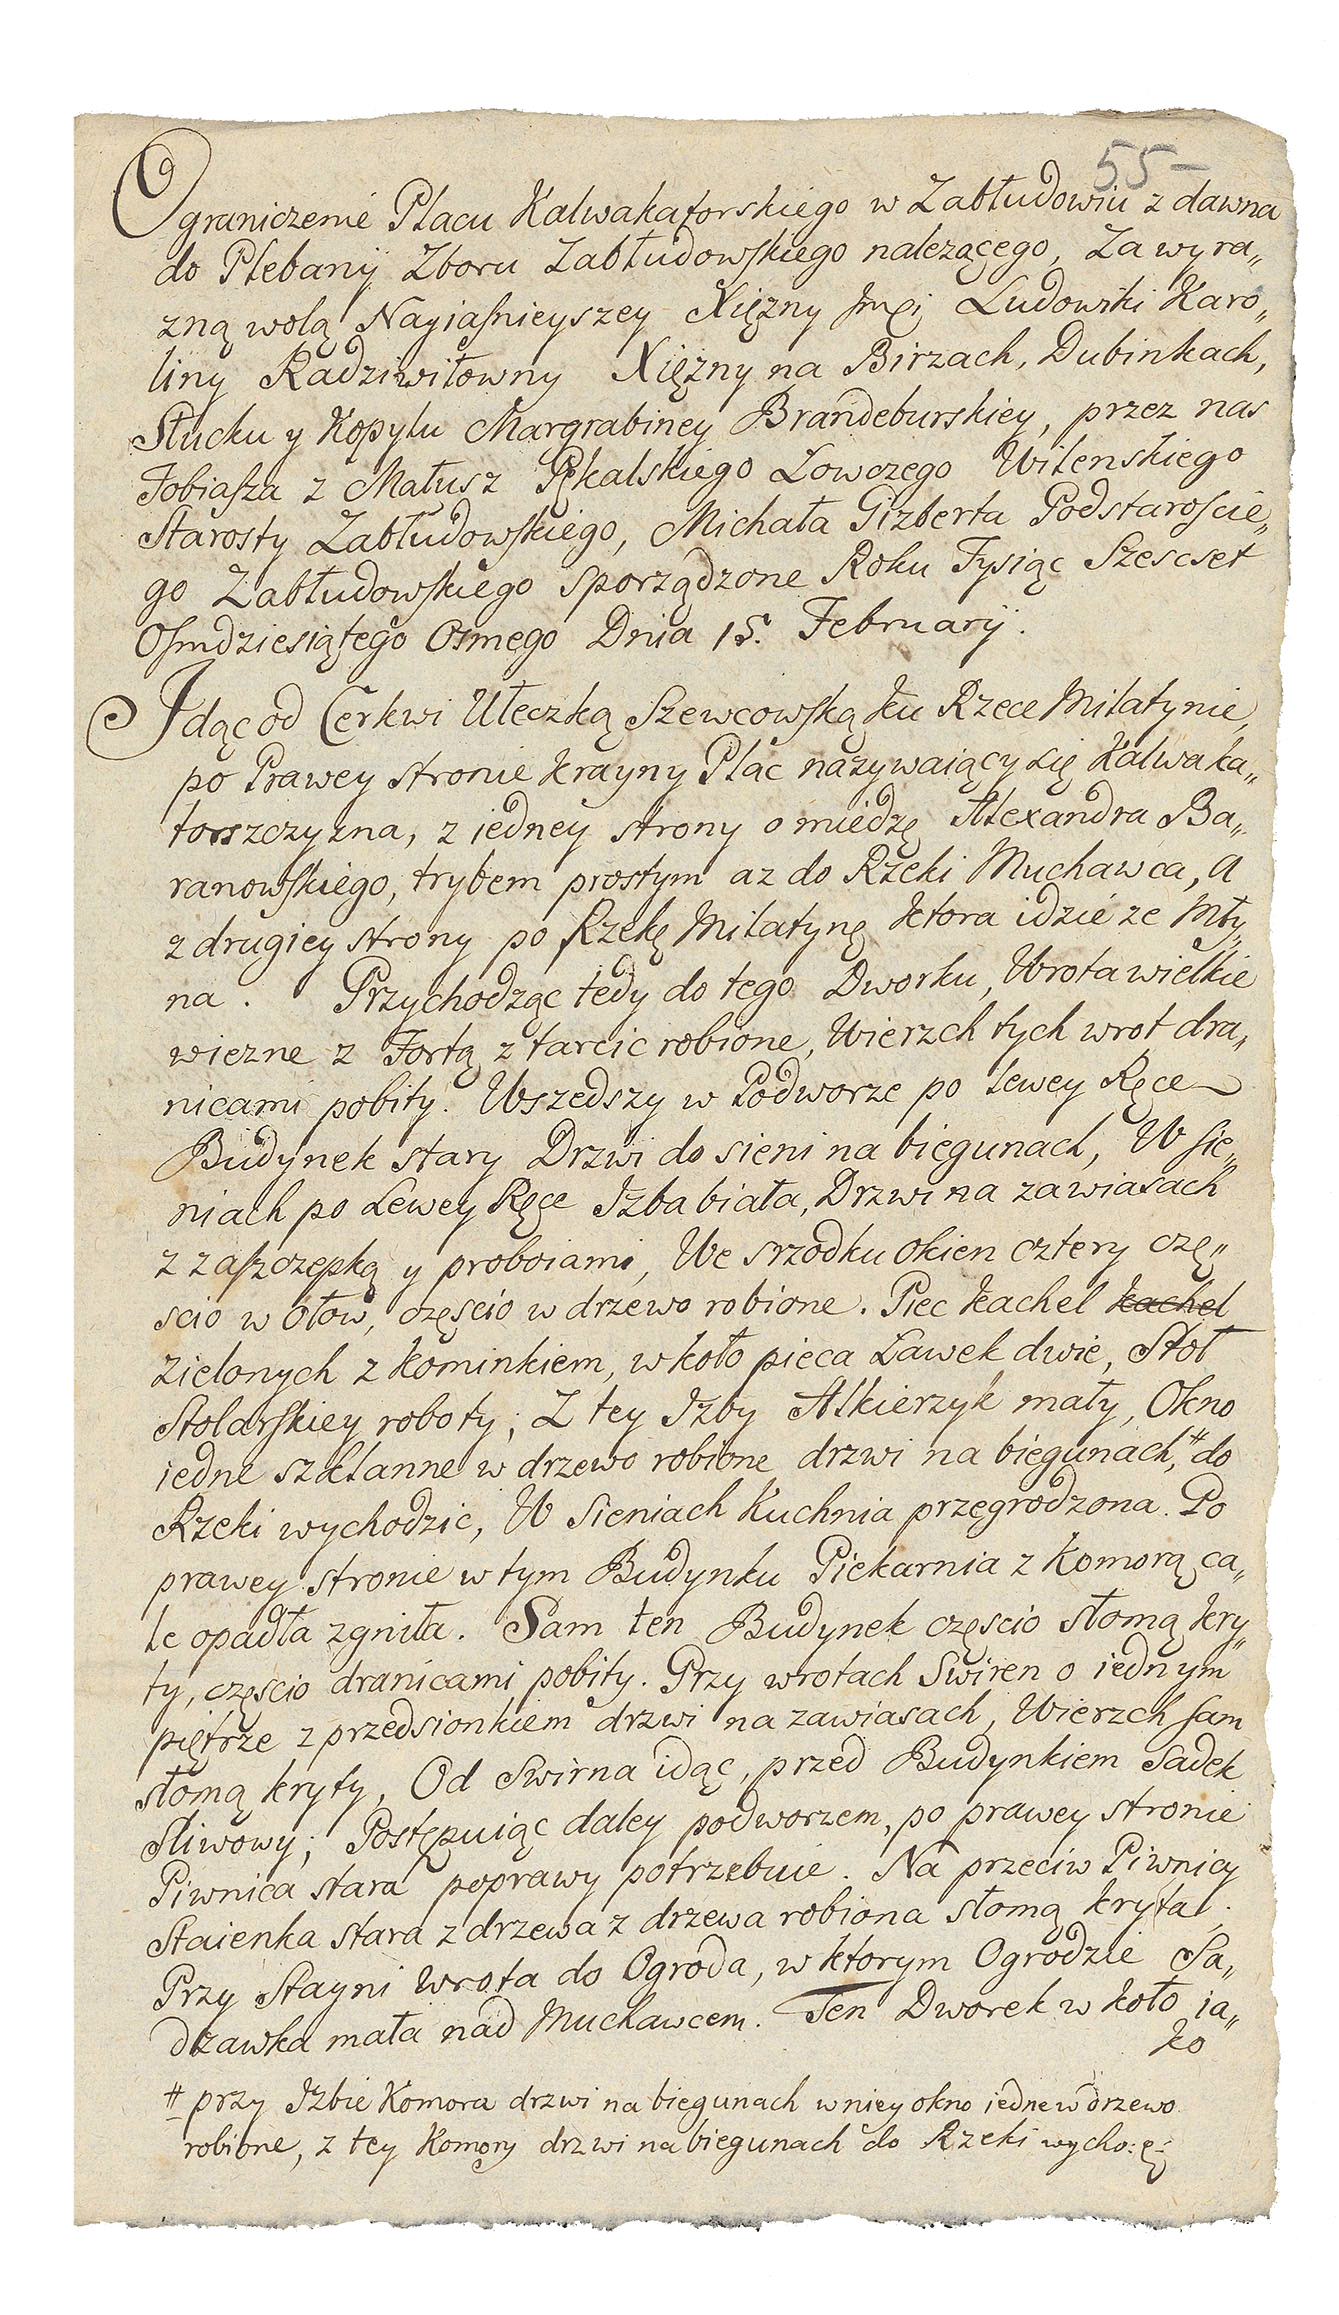 55-
Ograniczenie Placu Kalwakatorskiego w Zabłudowiu z dawna
do Plebanÿ Zboru Zabłudowskiego nalezącego, Za wyra„
zną wolą Nayiasnieyszey Xięzny Jmci Ludowiki Karo„
liny Radziwiłowny Xięzny na Birzach, Dubinkach,
Słucku y Kopylu Margrabiney Brandeburskiey, przez nas
Tobiasza z Małusz Pękalskiego Łowczego Wilenskiego
Starosty Zabłudowskiego, Michała Gizberta Podstaroscie„
go Zabłudowskiego sporządzone Roku Tysiąc Szescset
Osmdziesiątego Osmego Dnia 15. Februarÿ.
Jdąc od Cerkwi Uleczką Szewcowską ku Rzece Milatynie,
po Prawey stronie krayny Plac nazywaiący się Kalwaka„
torszczyzna, z iedney strony o miedzę Alexandra Ba„
ranowskiego, trybem prostym az do Rzeki Muchawca, a
z drugiey strony po Rzekę Milatynę ktora idzie ze Mły„
na. Przychodząc tedy do tego Dworku, Wrota wielkie
wiezne z Fortą z tarcic robione, Wierzch tych wrot dra„
nicami pobity. Wszedszy w Podworze po lewey Ręce
Budynek stary Drzwi do sieni na biegunach, W sie„
niach po Lewey Ręce Jzba biała, Drzwi na zawiasach
z zaszczepką y proboiami, We srzodku okien cztery czę„
scio w ołow, częscio w drzewo robione. Piec kachel kachel
zielonych z kominkiem, w koło pieca Ławek dwie, Stoł
Stolarskiey roboty; Z tey Jzby Alkierzyk mały, Okno
iedne szklanne w drzewo robione drzwi na biegunach,# do
Rzeki wychodzic, W Sieniach Kuchnia przegrodzona. Po
prawey stronie w tym Budynku Piekarnia z komorą ca„
le opadła zgniła. Sam ten Budynek częscio słomą kry„
ty, częscio dranicami pobity. Przy wrotach Swiren o iednym
piętrze z przedsionkiem drzwi na zawiasach, Wierzch sam
słomą kryty, Od Swirna idąc, przed Budynkiem Sadek
Sliwowy; Postępuiąc daley podworzem, po prawey stronie
Piwnica stara poprawy potrzebuie. Na przeciw Piwnicy
Staienka stara z drzewa z drzewa robiona słomą kryta;
Przy Stayni wrota do Ogroda, w ktorym Ogrodzie Sa„
dzawka mała nad Muchawcem. Ten Dworek w koło ia„
ko
# przy Jzbie Komora drzwi na biegunach w niey okno iedne w drzewo
robione, z tey Komory drzwi na biegunach do Rzeki